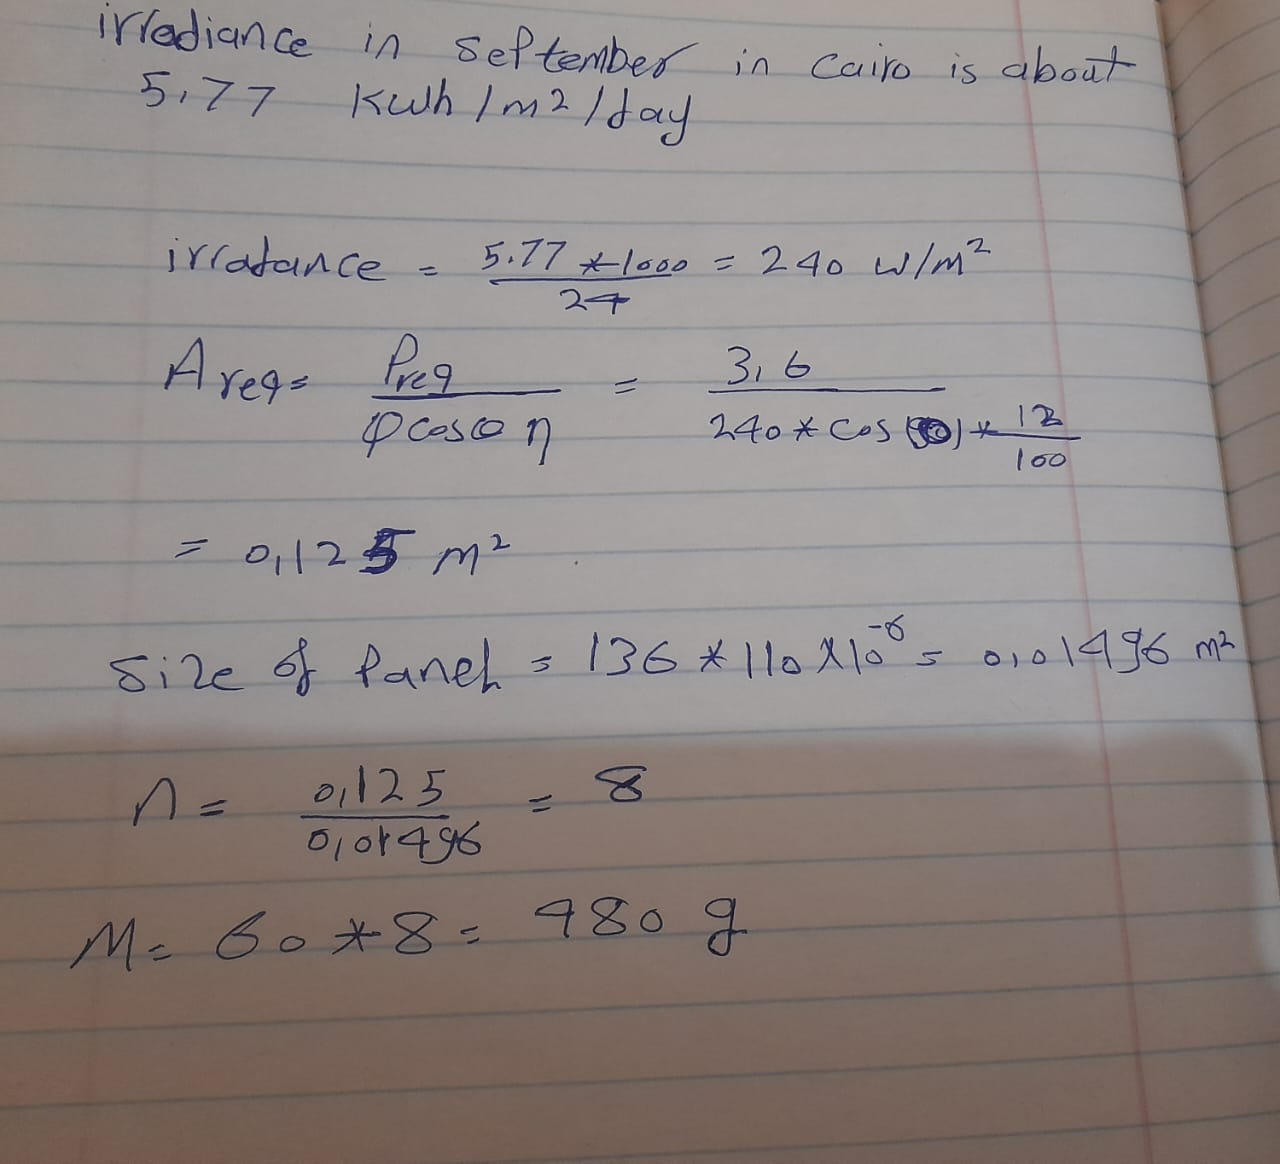 irrediance in september in cairo is about
5,77 kwh/m2/day
irratance = 5.77 * 1000 / 24 = 240 w/m²
Areq = Preq / φ cos θ η = 3,6 / 240 * cos(0) * 12 / 100
= 0,125 m²
size of Panel = 136 * 110 * 10⁻⁶ = 0,01496 m²
n = 0,125 / 0,01496 = 8
M = 60 * 8 = 480 g